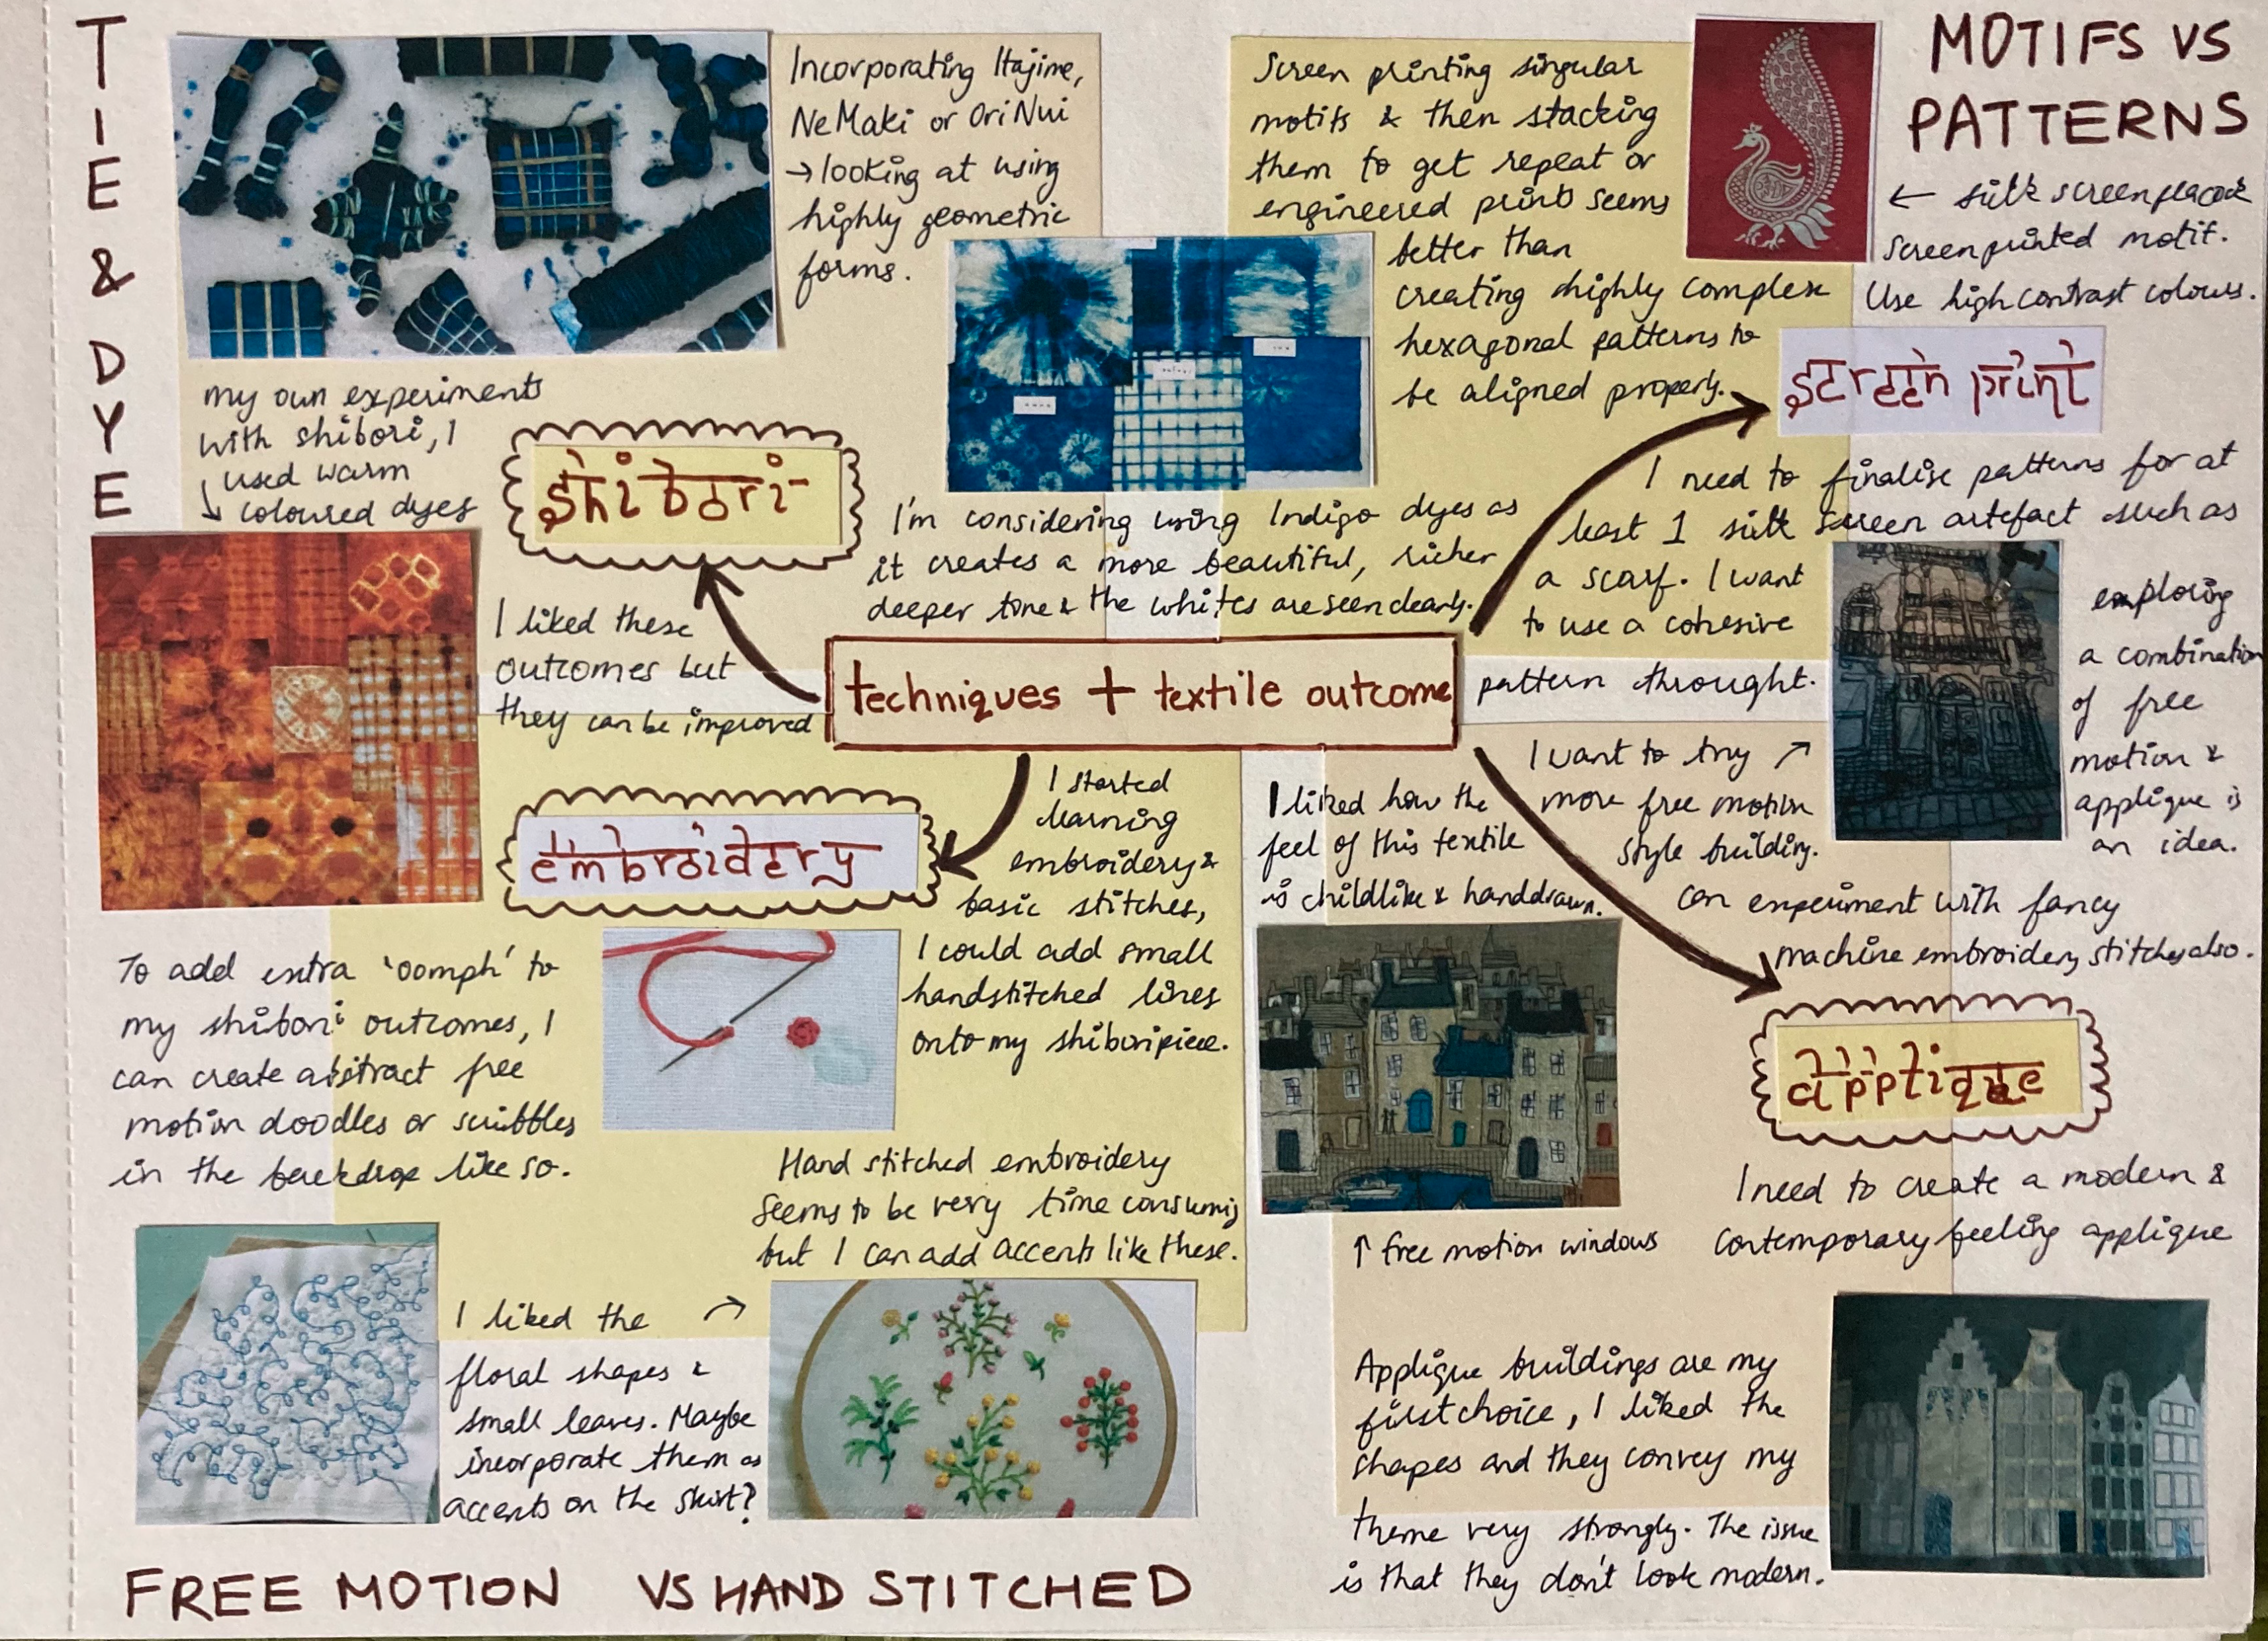 TIE & DYE
Incorporating Itajime,
NeMaki or Ori Nui
→ looking at using
highly geometric
forms.
my own experiments
with shibori, I
used warm
coloured dyes
shibori
I liked these
outcomes but
they can be improved
I'm considering using Indigo dyes as
it creates a more beautiful, richer
deeper tone & the whites are seen clearly.
Screen printing singular
motifs & then stacking
them to get repeat or
engineered prints seems
better than
creating highly complex
hexagonal patterns to
be aligned properly.
MOTIFS VS
PATTERNS
← silk screen peacock
screenprinted motif.
Use high contrast colours.
screen print
I need to finalise patterns for at
least 1 silk screen artefact such as
a scarf. I want
to use a cohesive
pattern throught.
techniques + textile outcome
exploring
a combination
of free
motion &
applique is
an idea.
I want to try ↗
more free motion
style building.
can experiment with fancy
machine embroidery stitches also.
I liked how the
feel of this textile
is childlike & handdrawn.
embroidery
I started
learning
embroidery &
basic stitches,
I could add small
handstitched lines
onto my shibori piece.
To add extra 'oomph' to
my shibori outcomes, I
can create abstract free
motion doodles or scribbles
in the backdrop like so.
Hand stitched embroidery
seems to be very time consuming
but I can add accents like these.
I liked the ↗
floral shapes &
small leaves. Maybe
incorporate them as
accents on the skirt?
applique
↑ free motion windows
I need to create a modern &
contemporary feeling applique
Applique buildings are my
first choice, I liked the
shapes and they convey my
theme very strongly. The issue
is that they don't look modern.
FREE MOTION VS HAND STITCHED